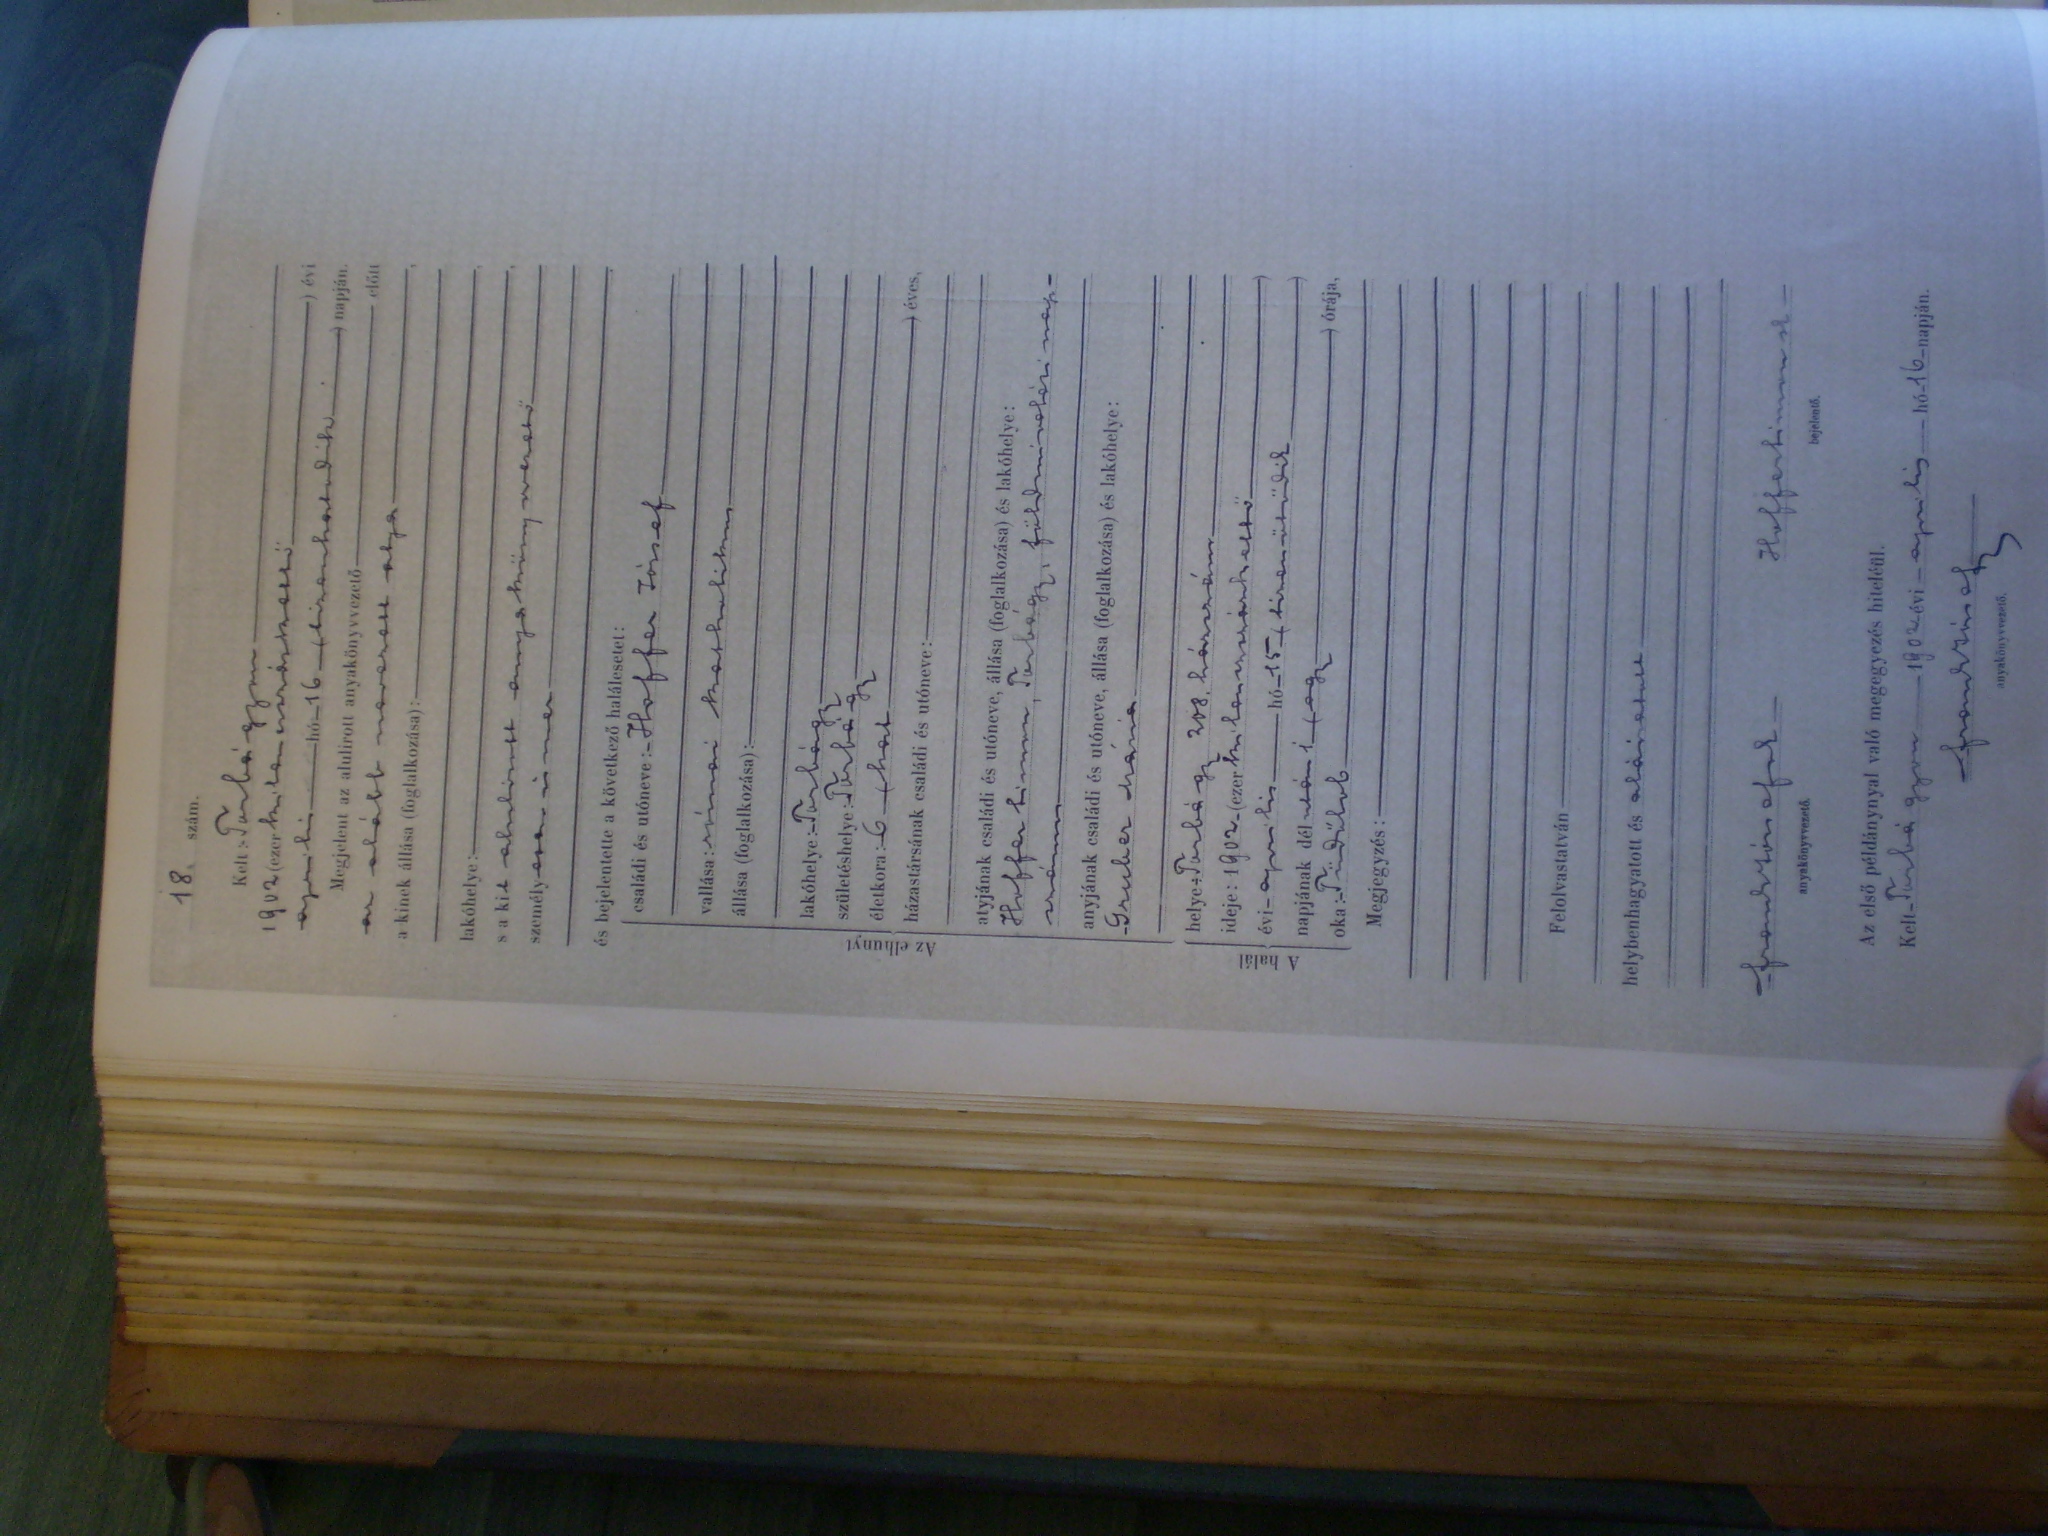 18. szám.
Kelt: Torbágyon
1902 (ezerkilencszázkettő) évi
április hó 16 (tizenhatodik) napján.
Megjelent az alulirott anyakönyvezető előtt
az alább nevezett atya
a kinek állása (foglalkozása):
lakóhelye:
s a kit alulirott anyakönyvvezető
személyesen ismer
és bejelentette a következő halálesetet:
családi és utóneve: Hoffer József
vallása: római katholikus
állása (foglalkozása):
lakóhelye: Torbágy
születéshelye: Torbágy
életkora: 6 (hat) éves,
házastársának családi és utóneve:
atyjának családi és utóneve, állása (foglalkozása) és lakóhelye:
Hoffer Simon, Torbágy, földmívelési nap-
számos
anyjának családi és utóneve, állása (foglalkozása) és lakóhelye:
Gruber Mária
Az elhunyt
helye: Torbágy 208. házszám
ideje: 1902 (ezerkilencszázkettő)
évi április hó 15 (tizenötödik)
napjának dél után 1 (egy) órája,
oka: Tüdőlob
A halál
Megjegyzés:
Felolvastatván
helybenhagyatott és aláíratott
anyakönyvezető.
Hoffer Simon sk
bejelentő.
Az első példánynyal való megegyezés hiteléül.
Kelt Torbágyon 1902 évi április hó 16 napján.
anyakönyvvezető.